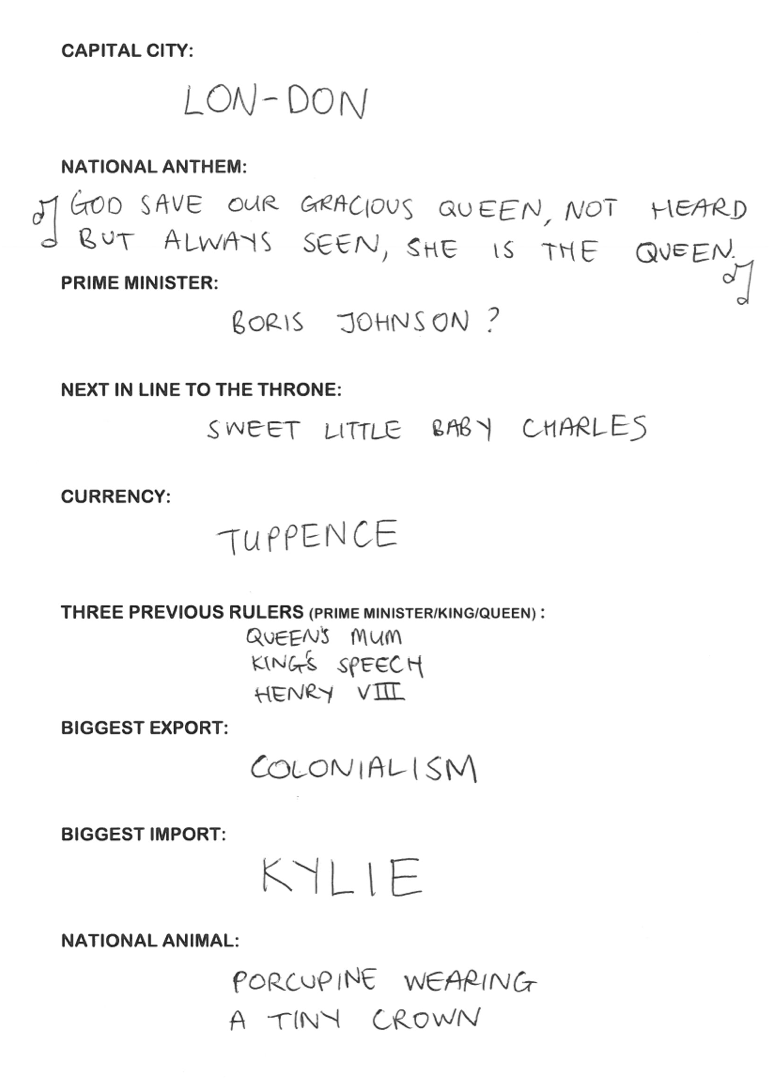 CAPITAL CITY:
LON-DON
NATIONAL ANTHEM:
GOD SAVE OUR GRACIOUS QUEEN, NOT HEARD
BUT ALWAYS SEEN, SHE IS THE QUEEN.
PRIME MINISTER:
BORIS JOHNSON ?
NEXT IN LINE TO THE THRONE:
SWEET LITTLE BABY CHARLES
CURRENCY:
TUPPENCE
THREE PREVIOUS RULERS (PRIME MINISTER/KING/QUEEN) :
QUEEN'S MUM
KING'S SPEECH
HENRY VIII
BIGGEST EXPORT:
COLONIALISM
BIGGEST IMPORT:
KYLIE
NATIONAL ANIMAL:
PORCUPINE WEARING
A TINY CROWN